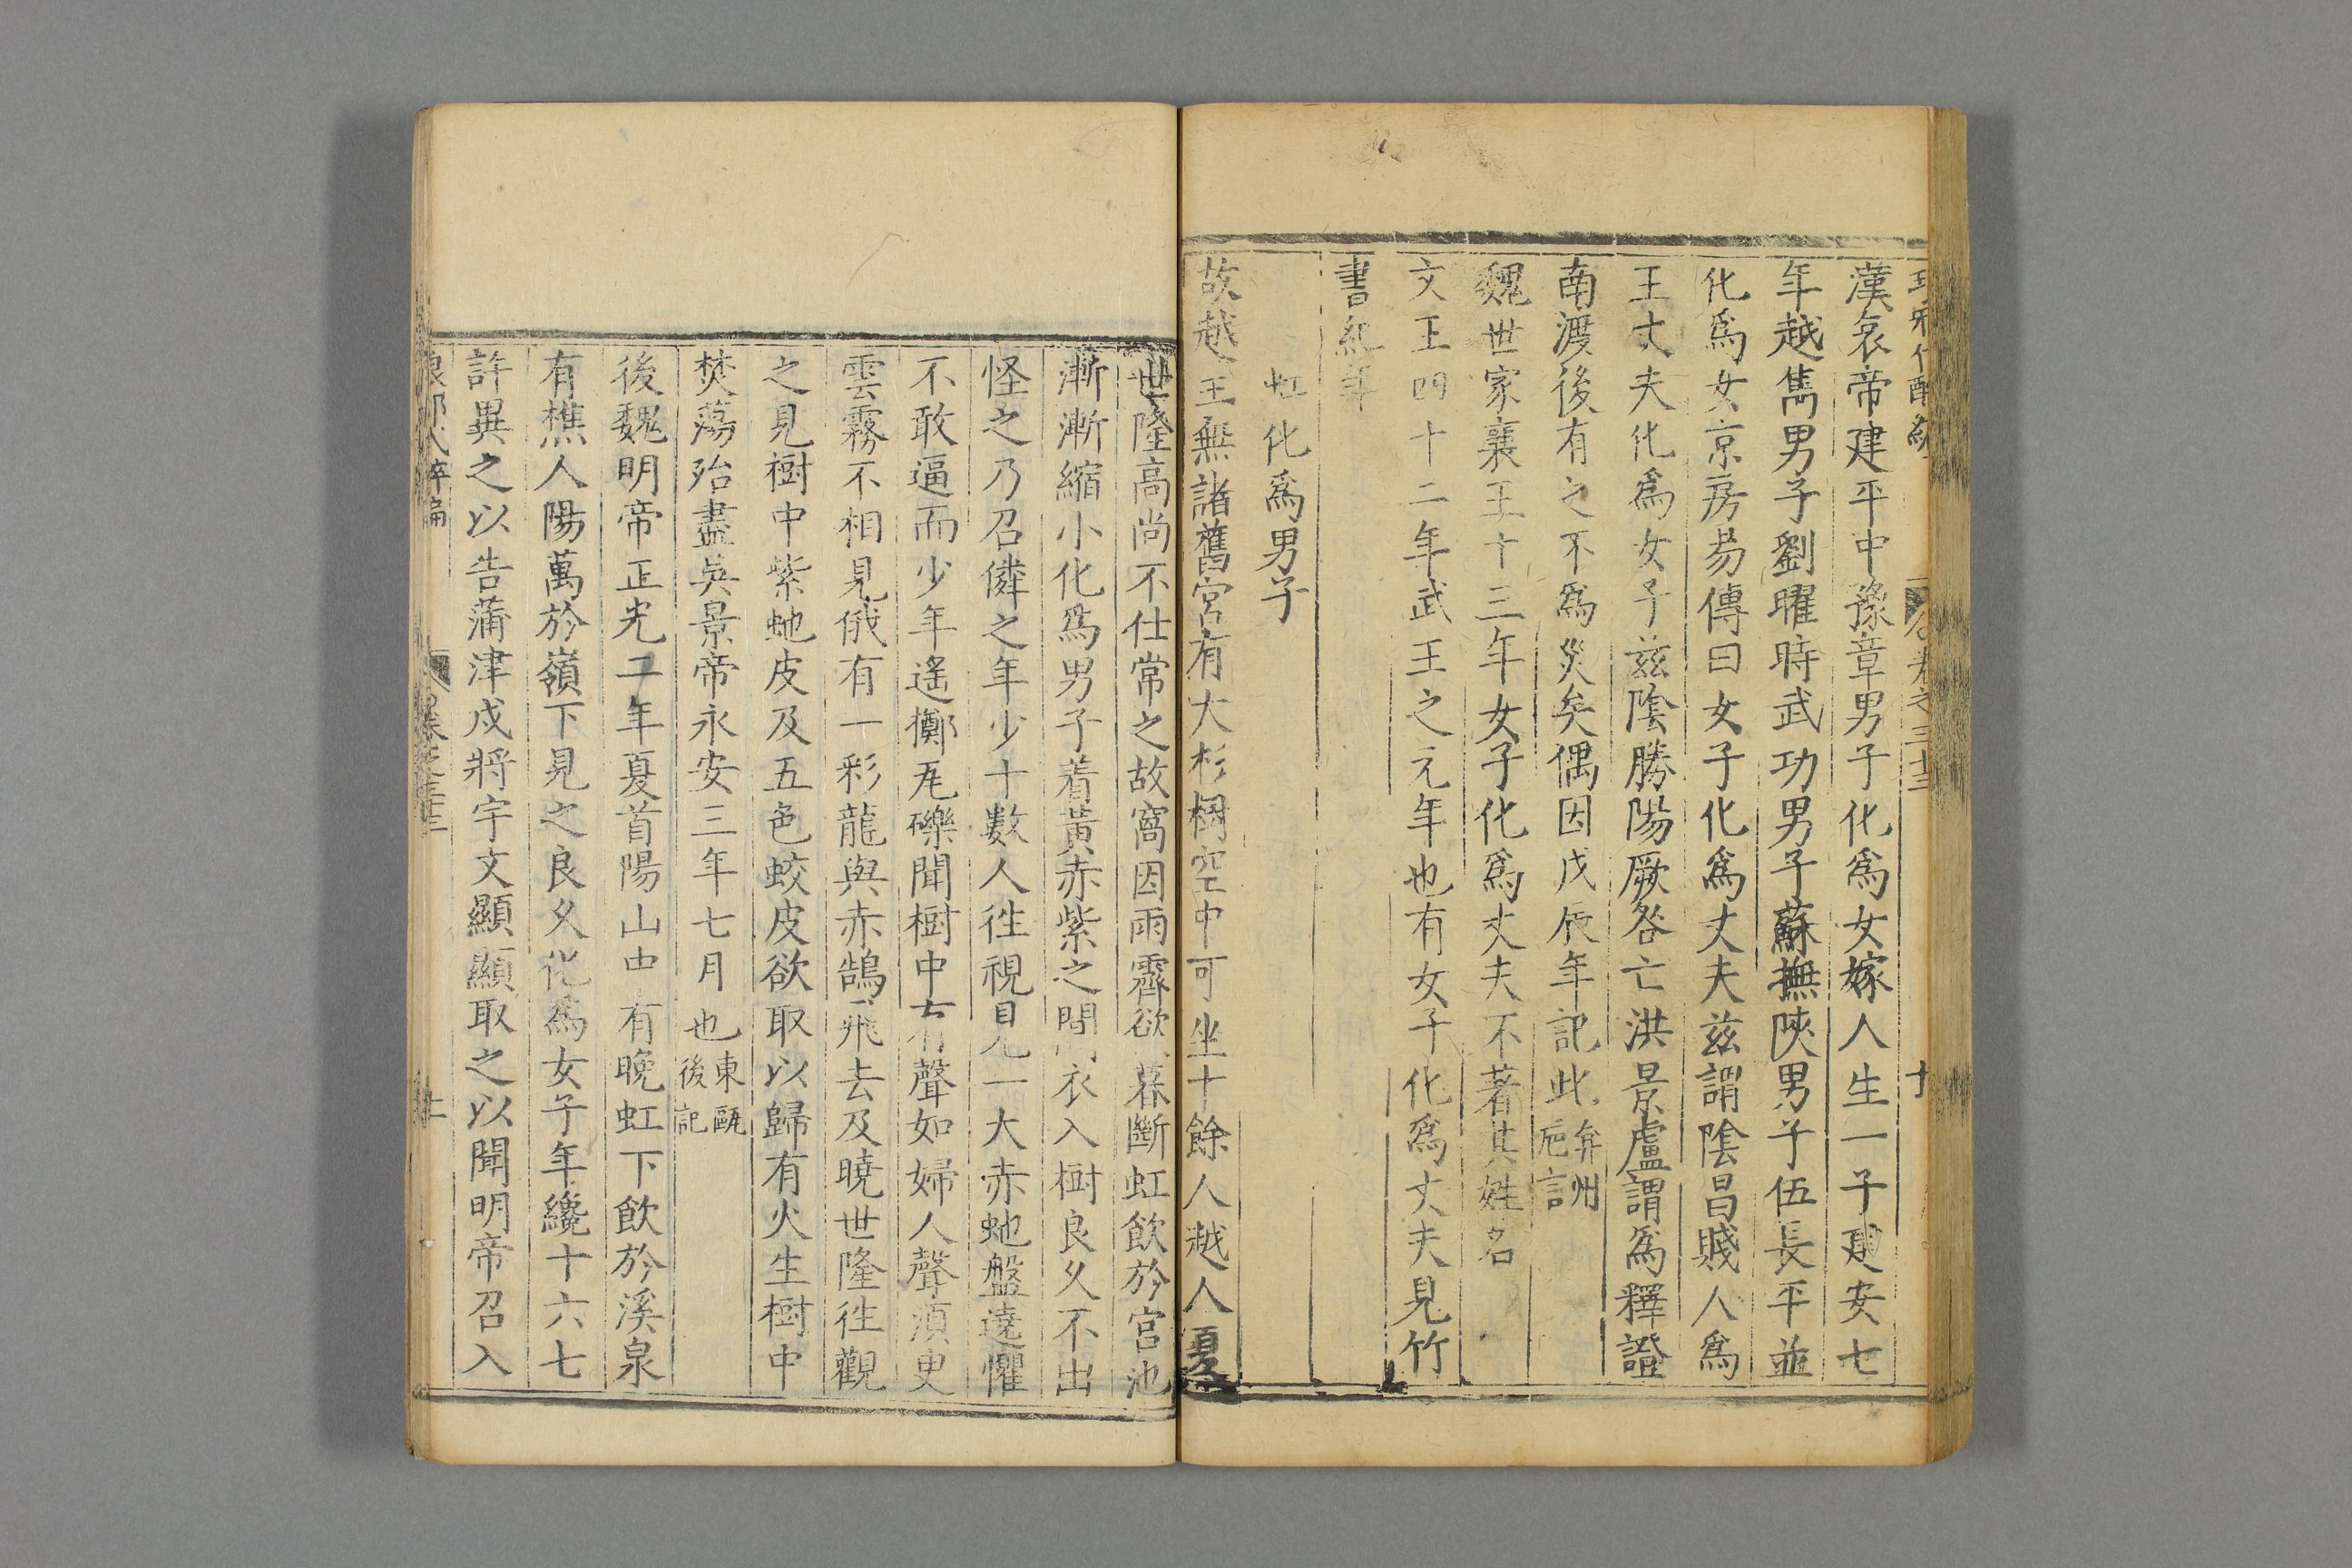 漢哀帝建平中豫章男子化為女嫁人生一子建安七
年越雋男子劉曜時武功男子蘇撫陝男子伍長平並
化為女京房易傳曰女子化為丈夫茲謂陰昌賤人為
王丈夫化為女子茲陰勝陽厥咎亡洪景盧謂為釋證
南渡後有之不為災矣偶因戊辰年記此弇州卮言
魏世家襄王十三年女子化為丈夫不著其姓名
文王四十二年武王之元年也有女子化為丈夫見竹
書紀年
虹化為男子
故越王無諸舊宮有大杉樹空中可坐十餘人越人夏
世隆高尚不仕常之故窩因雨霽欲暮斷虹飲於宮池
漸漸縮小化為男子着黃赤紫之間衣入樹良久不出
怪之乃召鄰之年少十數人往視見一大赤虵盤遶懼
不敢逼而少年遙擲瓦礫聞樹中有聲如婦人聲須臾
雲霧不相見俄有一彩龍與赤鵠飛去及曉世隆往觀
之見樹中紫虵皮及五色蛟皮欲取以歸有火生樹中
焚蕩殆盡吳景帝永安三年七月也東甌後記
後魏明帝正光二年夏首陽山中有晚虹下飲於溪泉
有樵人陽萬於嶺下見之良久化為女子年纔十六七
許異之以告蒲津戍將宇文顯顯取之以聞明帝召入